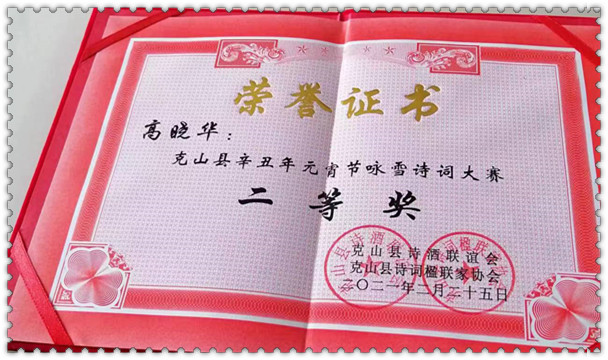 荣誉证书
高晓华：
克山县辛丑年元宵节咏雪诗词大赛
二等奖
克山县诗酒联谊会
克山县诗词楹联家协会
二〇二一年二月二十五日